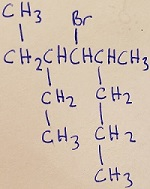 CH3 Br
CH2CHCHCHCH3
CH2 CH2
CH3 CH2
CH3